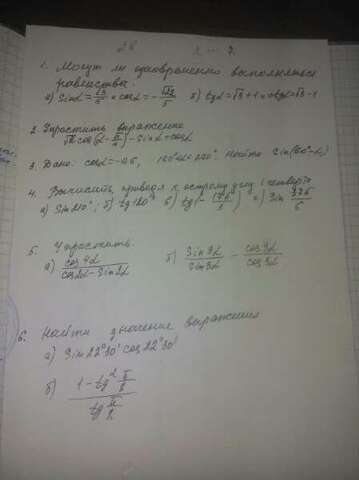 1. Могут ли одновременно выполняться
равенства:
а) sinα = √3/5 и cosα = - б) tgα = √3+1 и ctgα = √3-1
2. Упростить выражение
√2 cos(α - π/4) - sinα = cosα
3. Дано: cosα = -0,6, Найти sin(60° - α)
4. Вычислить, приведя к острому углу I четверти
а) sin210°; б) tg120° в) tg(- г) sin 37π/6
5. Упростить.
а) cos4α / cos2α - sin2α б) sin9α / sin3α - cos9α / cos3α
6. Найти значение выражения
а) sin22°30' cos22°30'
б) 1 - tg² π/8 / tg π/8